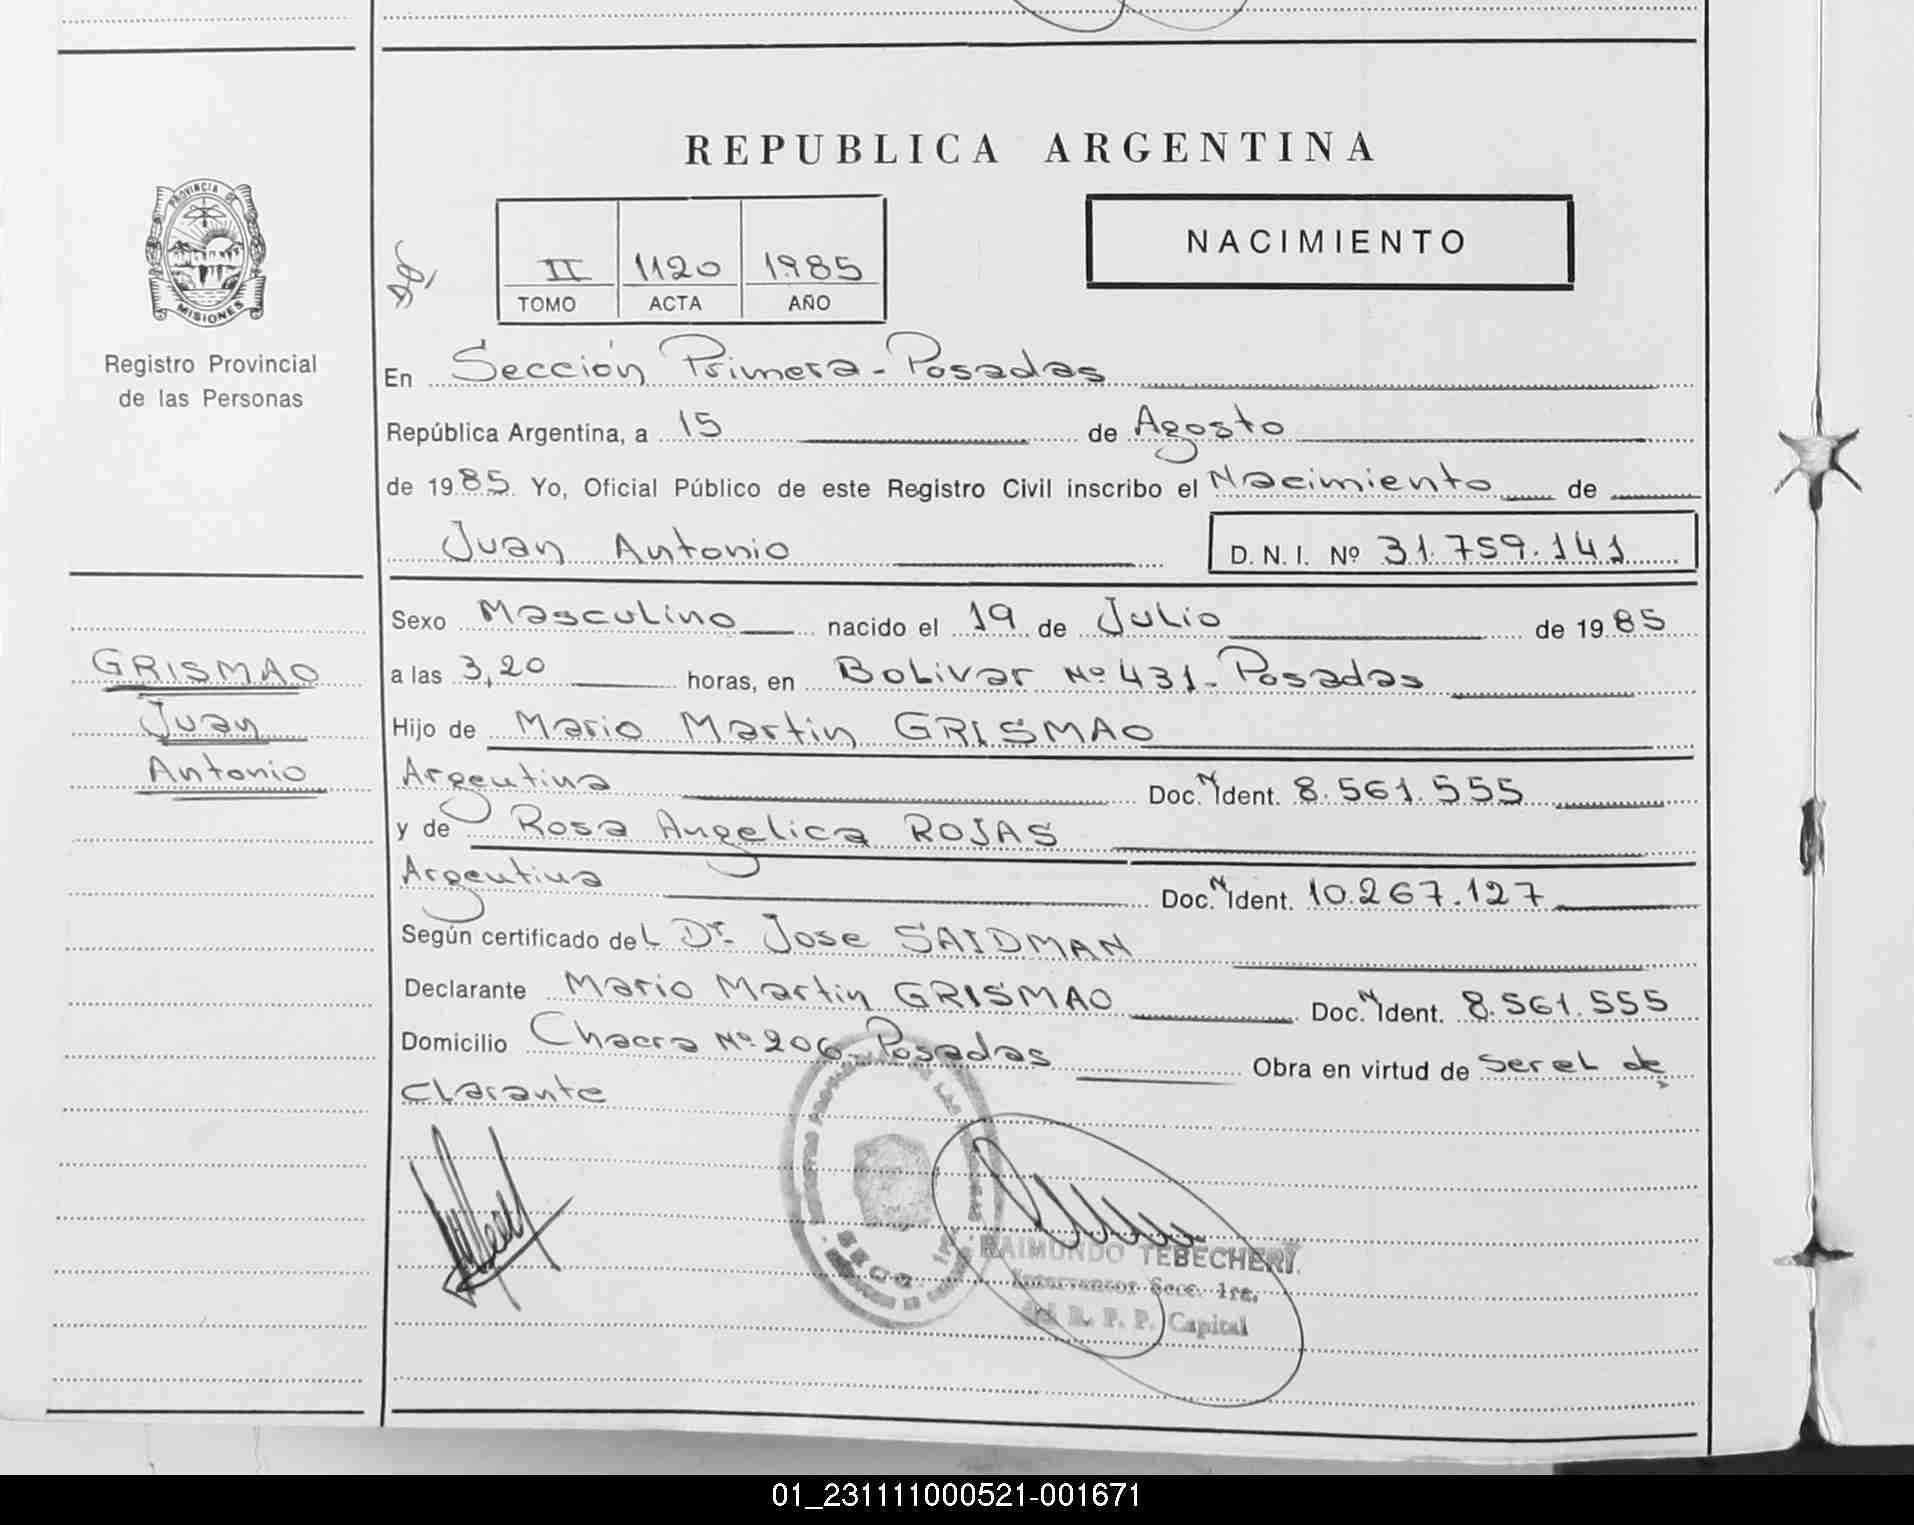 REPUBLICA ARGENTINA
PROVINCIA DE
MISIONES
Registro Provincial
de las Personas
II 1120 1985
TOMO ACTA AÑO
NACIMIENTO
En Sección Primera - Posadas
República Argentina, a 15 de Agosto
de 1985. Yo, Oficial Público de este Registro Civil inscribo el Nacimiento de
Juan Antonio D. N. I. Nº 31.759.141
GRISMAO
Juan
Antonio
Sexo Masculino nacido el 19 de Julio de 1985
a las 3,20 horas, en Bolivar Nº 431 - Posadas
Hijo de Mario Martin GRISMAO
Argentina Doc. N Ident. 8.561.555
y de Rosa Angelica ROJAS
Argentina Doc. N Ident. 10.267.127
Según certificado del Dr. Jose SAIDMAN
Declarante Mario Martin GRISMAO Doc. N Ident. 8.561.555
Domicilio Chacra Nº 206 - Posadas Obra en virtud de ser el de
clarante
SECC. 1ª
RAIMUNDO TEBECHERY.
Interventor Secc. 1ra.
del R. P. P. Capital
01_231111000521-001671